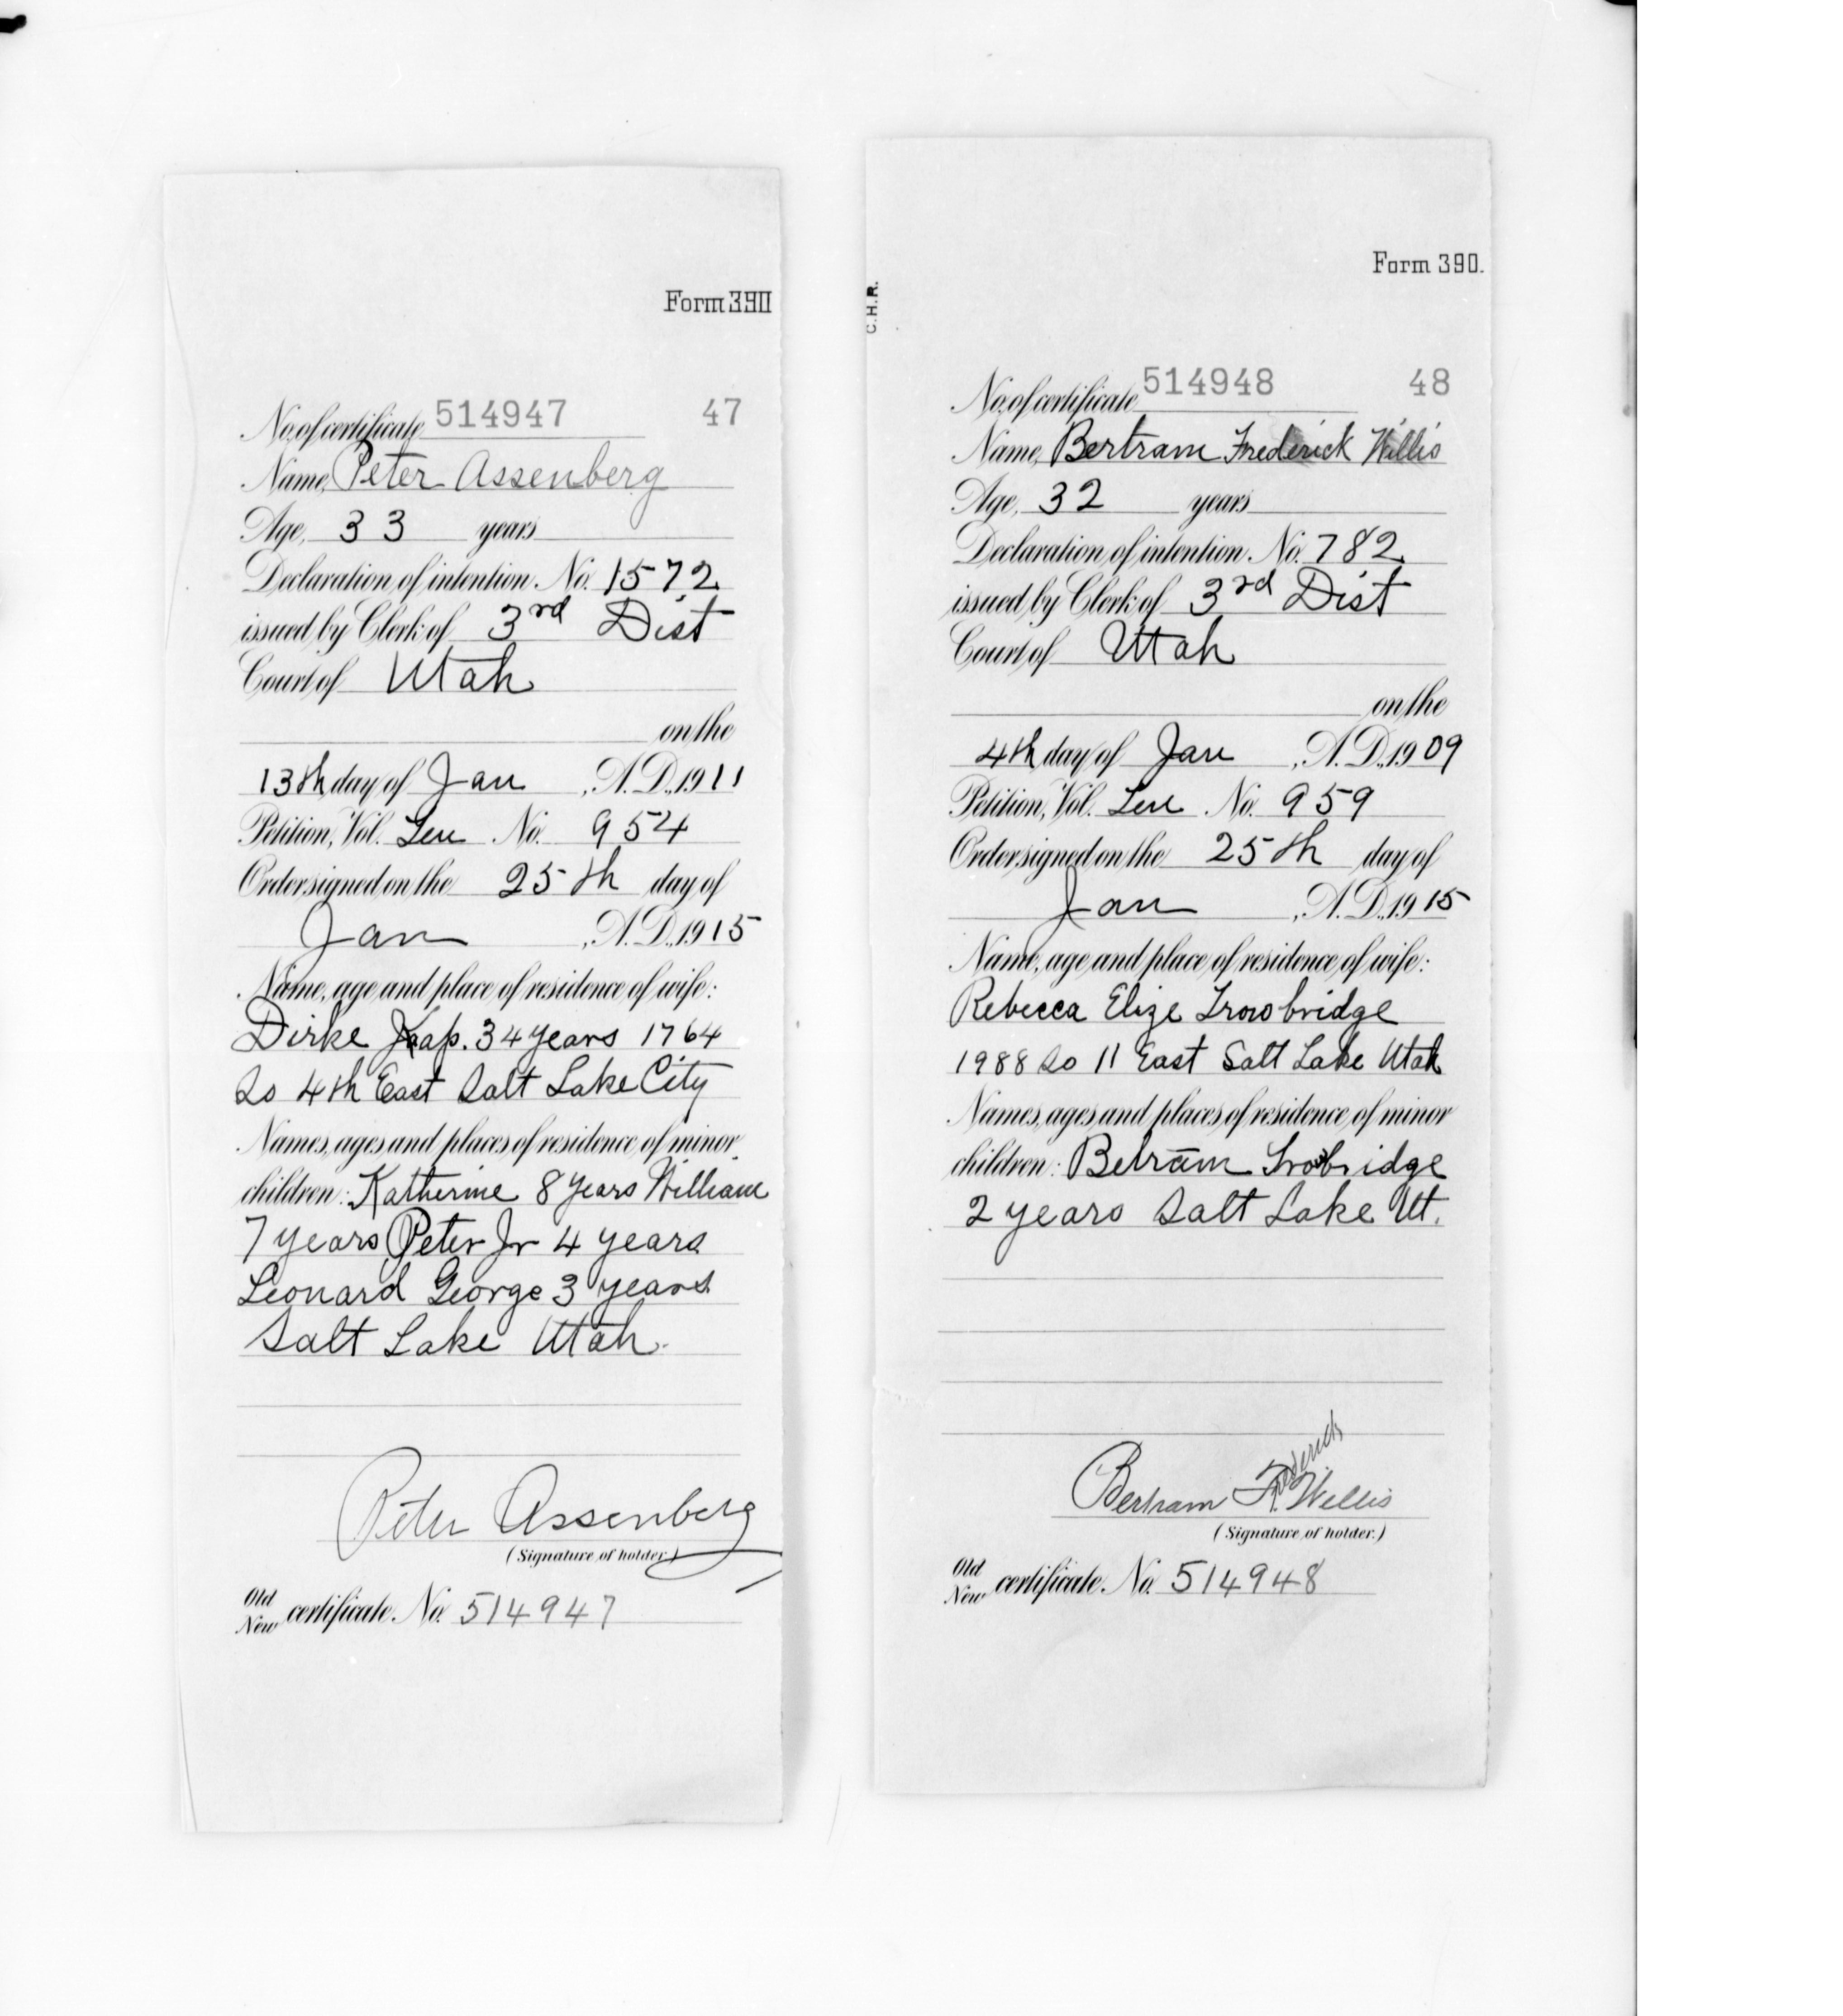 Form 390
No. of certificate 514947 47
Name, Peter Assenberg
Age, 33 years
Declaration of intention No. 1572
issued by Clerk of 3rd Dist
Court of Utah
on the
13th day of Jan, A.D. 1911
Petition, Vol. Ten No. 954
Order signed on the 25th day of
Jan, A.D. 1915
Name, age and place of residence of wife:
Dirke Kaap. 34 years 1764
So 4th East Salt Lake City
Names, ages and places of residence of minor
children: Katherine 8 years William
7 years Peter Jr 4 years
Leonard George 3 years
Salt Lake Utah.
Peter Assenberg
(Signature of holder)
Old
New certificate No. 514947
C.H.R.
Form 390.
No. of certificate 514948 48
Name, Bertram Frederick Willis
Age, 32 years
Declaration of intention No. 782
issued by Clerk of 3rd Dist
Court of Utah
on the
4th day of Jan, A.D. 1909
Petition, Vol. Ten No. 959
Order signed on the 25th day of
Jan, A.D. 1915
Name, age and place of residence of wife:
Rebecca Elize Trowbridge
1988 So 11 East Salt Lake Utah
Names, ages and places of residence of minor
children: Betram Trowbridge
2 years Salt Lake Ut.
Bertram Frederick Willis
(Signature of holder.)
Old
New certificate No. 514948